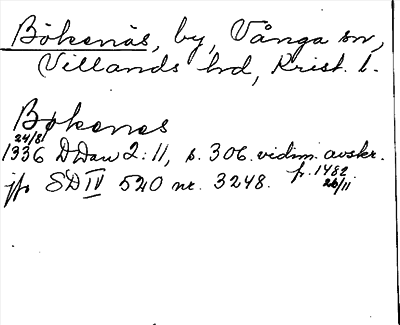 Bökenäs, by, Vånga sn,
Villands hd, Krist. l.
Bokenes
24/8
1336 DDan 2:11, s. 306. vidim. avskr.
fr. 1482
26/11
jfr SD IV 520 nr. 3248.